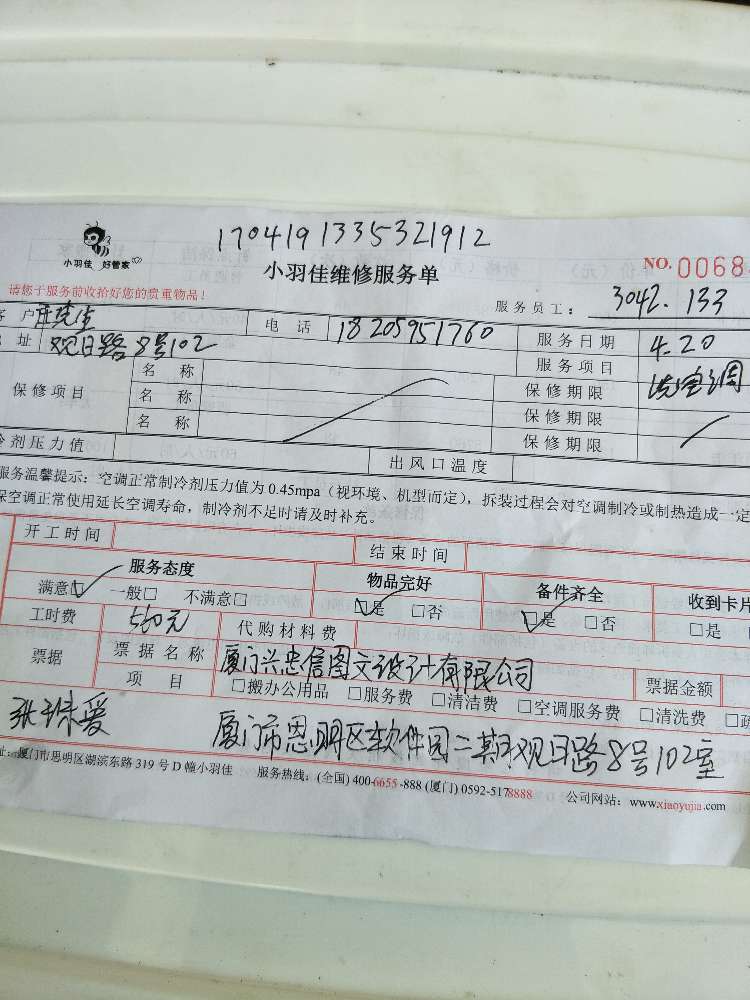 1704191335321912
小羽佳 好管家
小羽佳维修服务单
NO.0068
请您于服务前收拾好您的贵重物品!
服务员工: 3042.133
客户 庄先生 电话 18205951760 服务日期 4.20
址 观日路8号102 服务项目 洗空调
保修项目 名称 保修期限
名称 保修期限
名称 保修期限
冷剂压力值 出风口温度
服务温馨提示:空调正常制冷剂压力值为0.45mpa(视环境、机型而定),拆装过程会对空调制冷或制热造成一定
保空调正常使用延长空调寿命,制冷剂不足时请及时补充。
开工时间 结束时间
服务态度 物品完好 备件齐全 收到卡片
满意☑ 一般□ 不满意□ ☑是 □否 ☑是 □否 □是
工时费 560元 代购材料费
票据 票据名称 厦门兴忠信图文设计有限公司 票据金额
项目 □搬办公用品 □服务费 □清洁费 □空调服务费 □清洗费 □疏
张珠爱 厦门市思明区软件园二期观日路8号102室
址:厦门市思明区湖滨东路319号D幢小羽佳 服务热线:(全国)400-6655-888(厦门)0592-5178888 公司网站:www.xiaoyujia.com